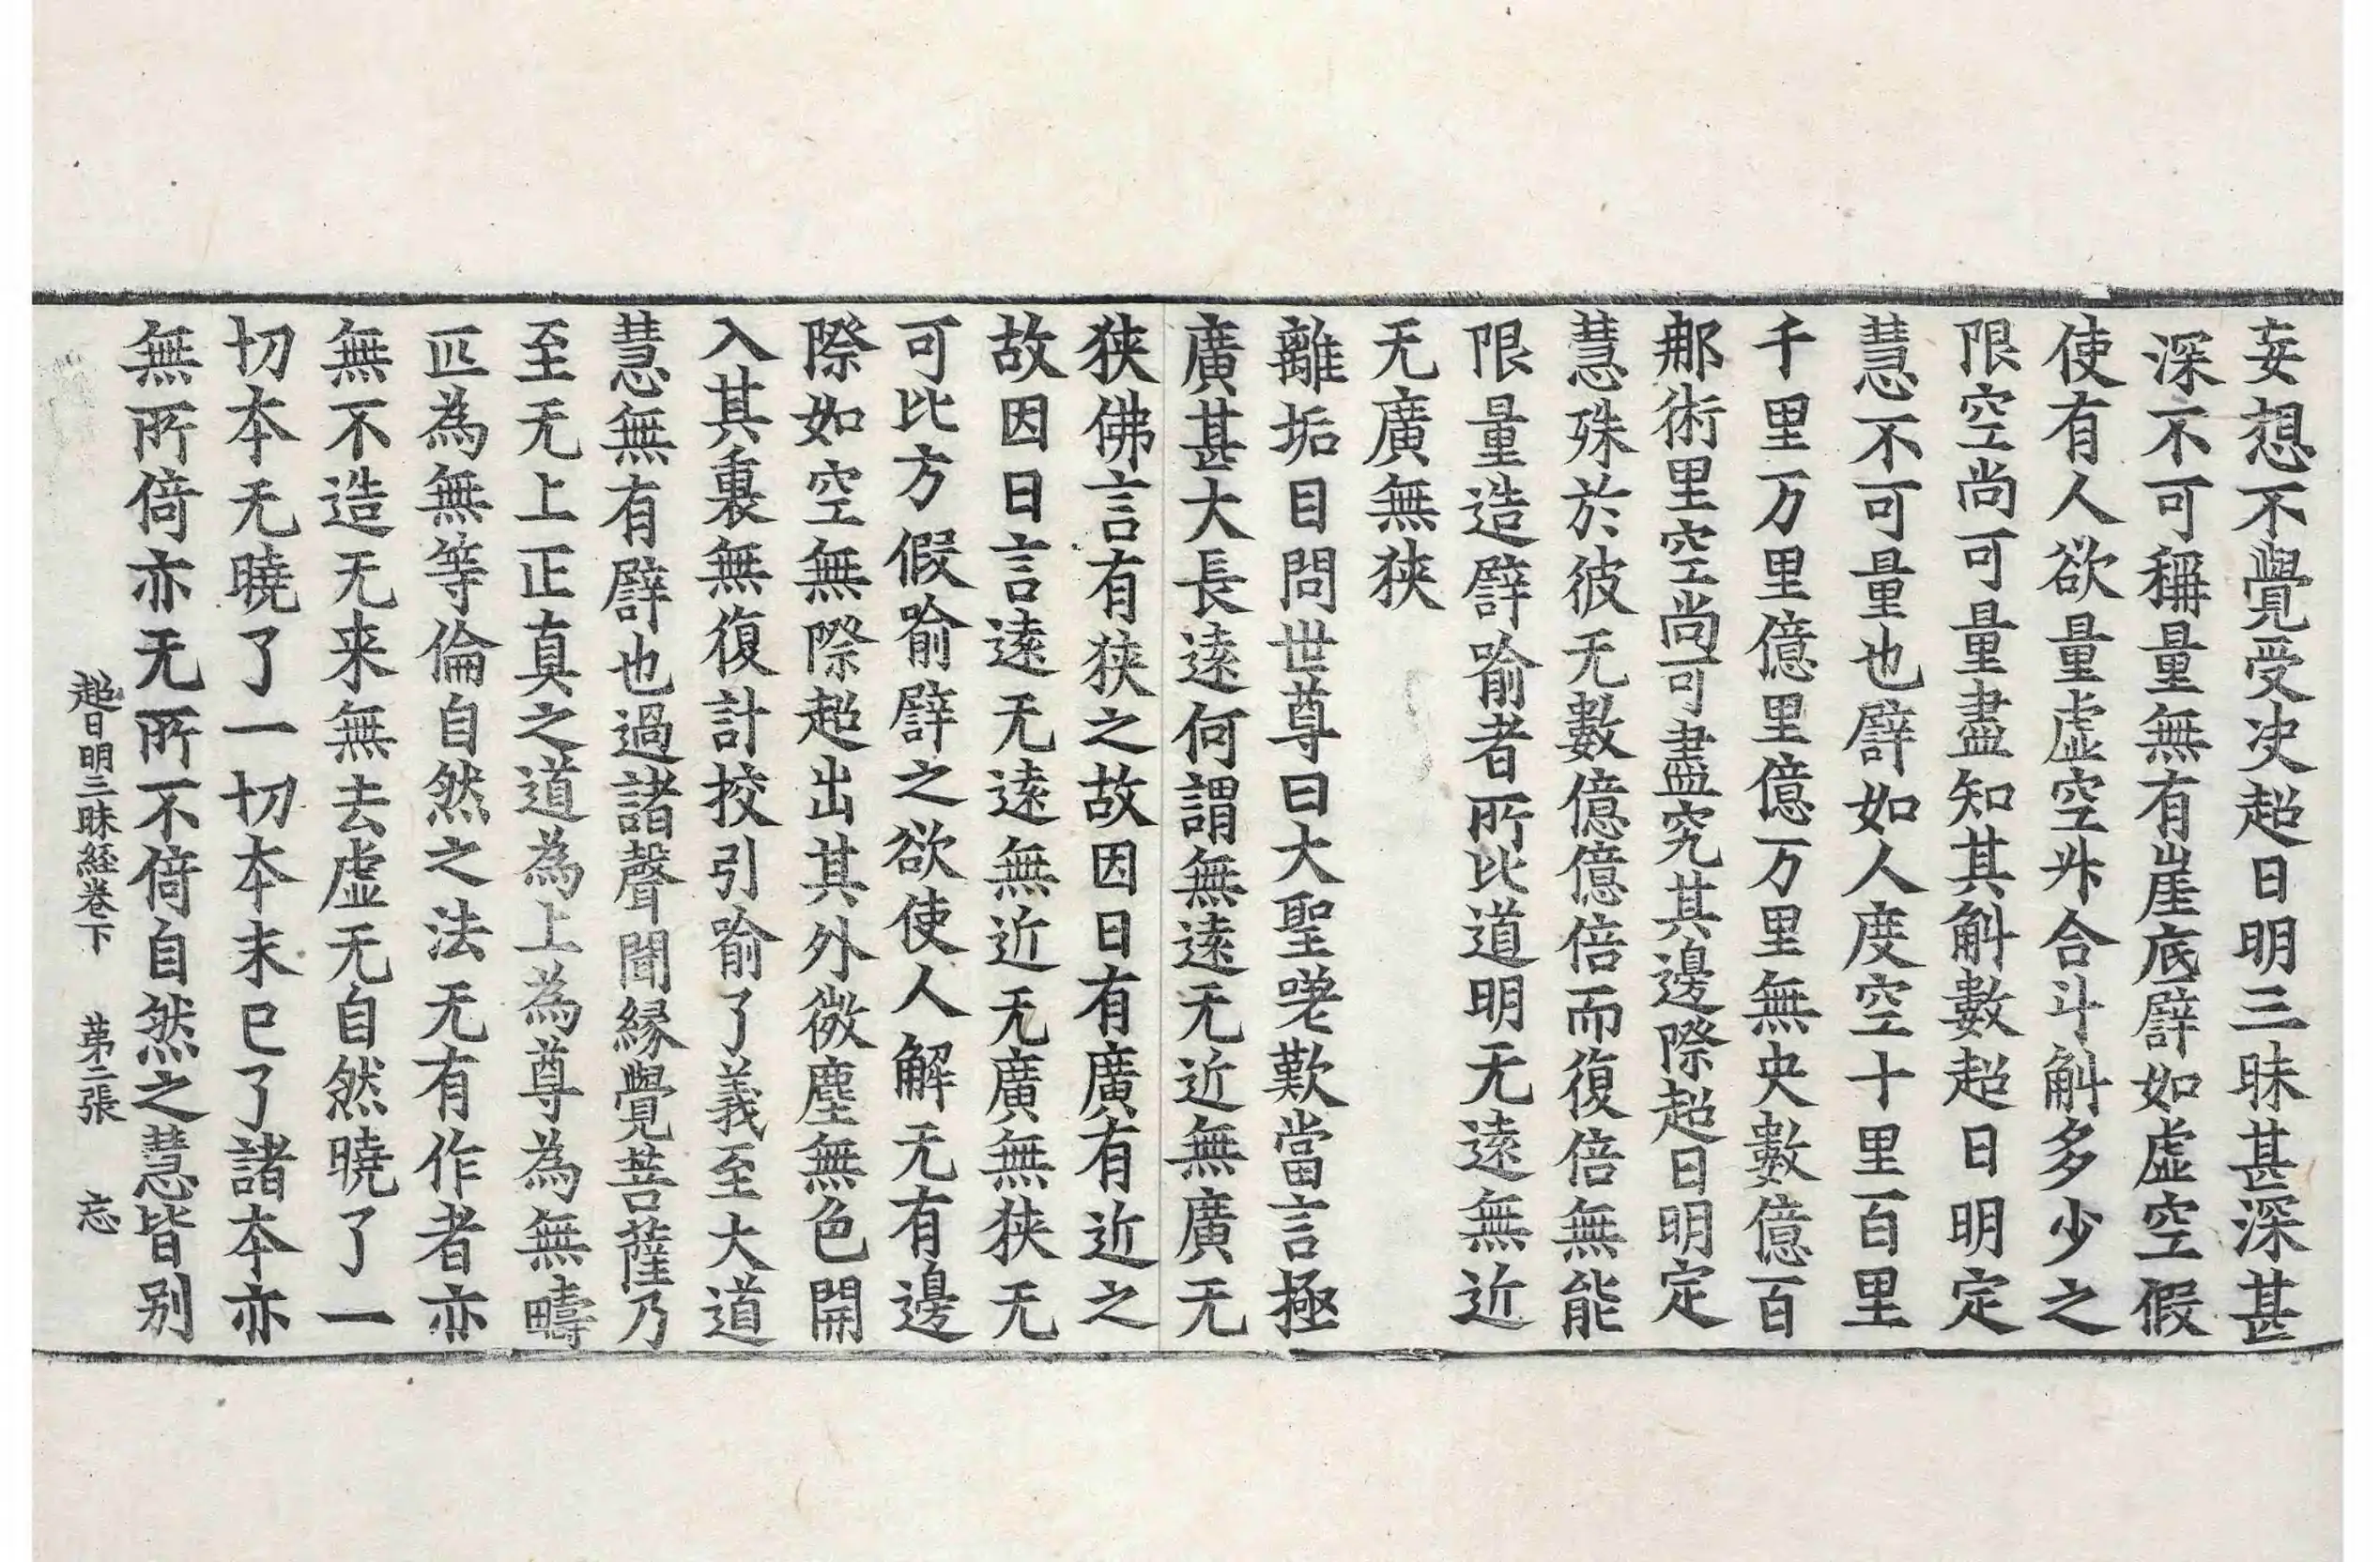 妄想不覺受决超日明三昧甚深甚
深不可稱量無有崖底譬如虛空假
使有人欲量虛空升合斗斛多少之
限空尚可量盡知其斛數超日明定
慧不可量也譬如人度空十里百里
千里万里億里億万里無央數億百
那術里空尚可盡究其邊際超日明定
慧殊於彼无數億億倍而復倍無能
限量造譬喻者所比道明无遠無近
无廣無狹
離垢目問世尊曰大聖嗟歎當言極
廣甚大長遠何謂無遠无近無廣无
狹佛言有狹之故因曰有廣有近之
故因曰言遠无遠無近无廣無狹无
可比方假喻譬之欲使人解无有邊
際如空無際超出其外微塵無色開
入其裏無復計挍引喻了義至大道
慧無有譬也過諸聲聞緣覺菩薩乃
至无上正真之道為上為尊為無疇
匹為無等倫自然之法无有作者亦
無不造无来無去虛无自然曉了一
切本无曉了一切本末已了諸本亦
無所倚亦无所不倚自然之慧皆别
超日明三昧経卷下　第二張　忘